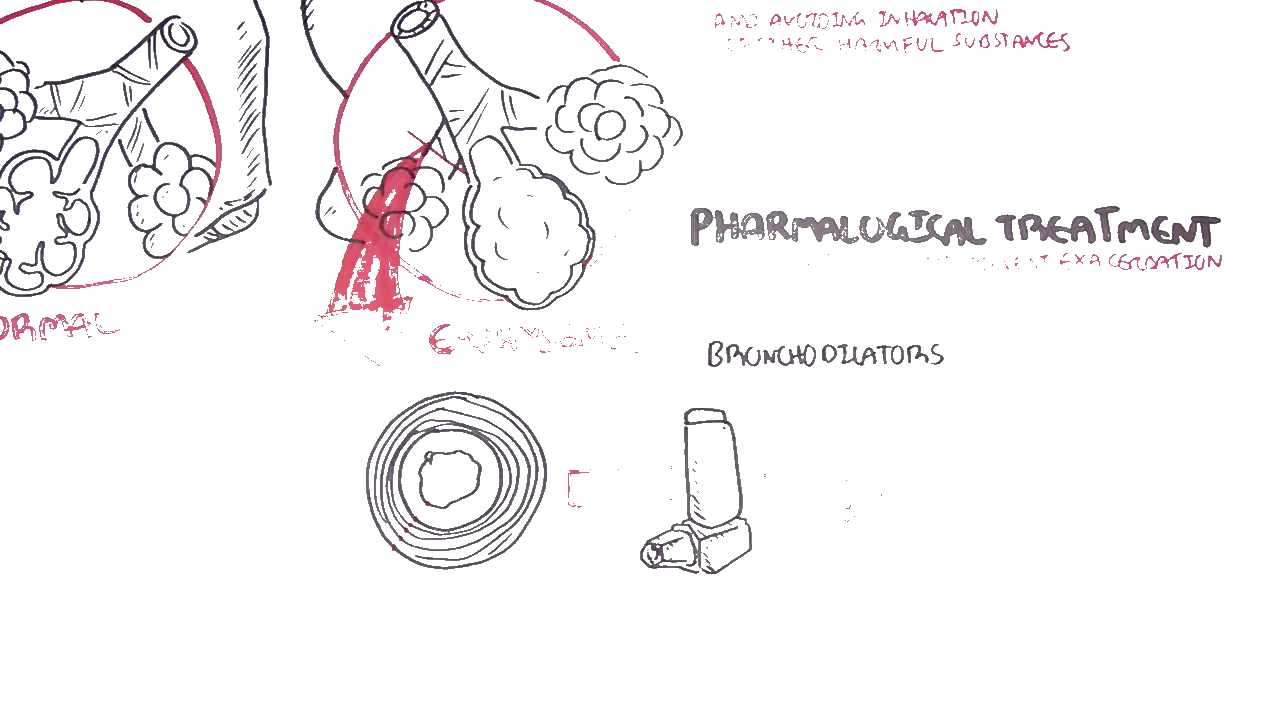 AND AVOIDING INHALATION
OTHER HARMFUL SUBSTANCES
PHARMALOGICAL TREATMENT
EXACERBATION
ORMAL
BRONCHODILATORS